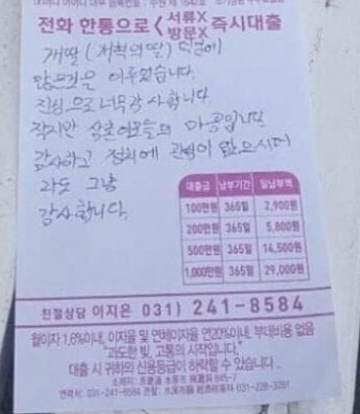 전화 한통으로 < 서류X 방문X 즉시대출
개딸 ( 개혁의딸 ) 덕분에
많은것을 이루었습니다.
진심으로 너무 감사합니다.
작지만 삼촌이모들의 마음입니다
감사하고 정치에 관심이 없으시더
라도 그냥
감사합니다.
대출금 납부기간 일납부액
100만원 365일 2,900원
200만원 365일 5,800원
500만원 365일 14,500원
1,000만원 365일 29,000원
친절상담 이지은 031) 241-8584
월이자 1.6%이내, 이자율 및 연체이자율 연20%이내, 부대비용 없음
"과도한 빚, 고통의 시작입니다."
대출 시 귀하의 신용등급이 하락할 수 있습니다.
연락처: 031-241-8584
031-228-3281